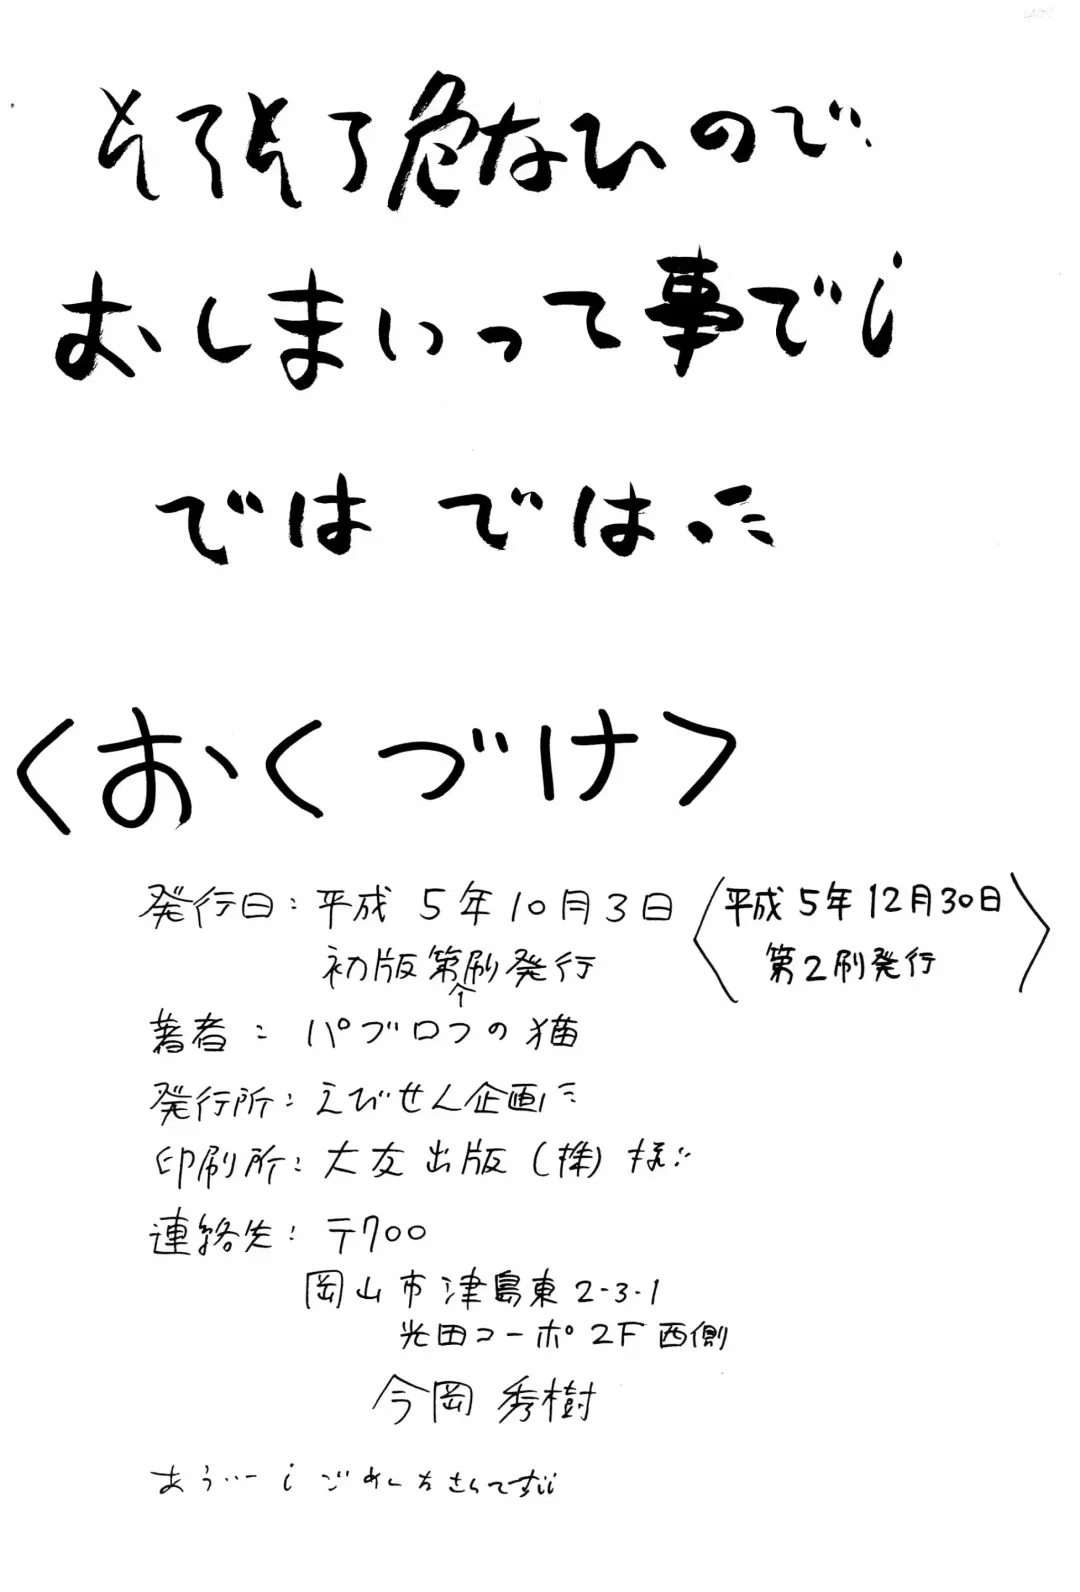 そろそろ危ないので
おしまいって事で!
では では
<おくづけ>
発行日:平成 5年10月3日
初版第1刷発行
<平成5年12月30日
第2刷発行>
著者: パブロフの猫
発行所:えびせん企画
印刷所:大友出版(株)様
連絡先:〒700
岡山市津島東2-3-1
光田コーポ2F西側
今岡 秀樹
あう…ー!